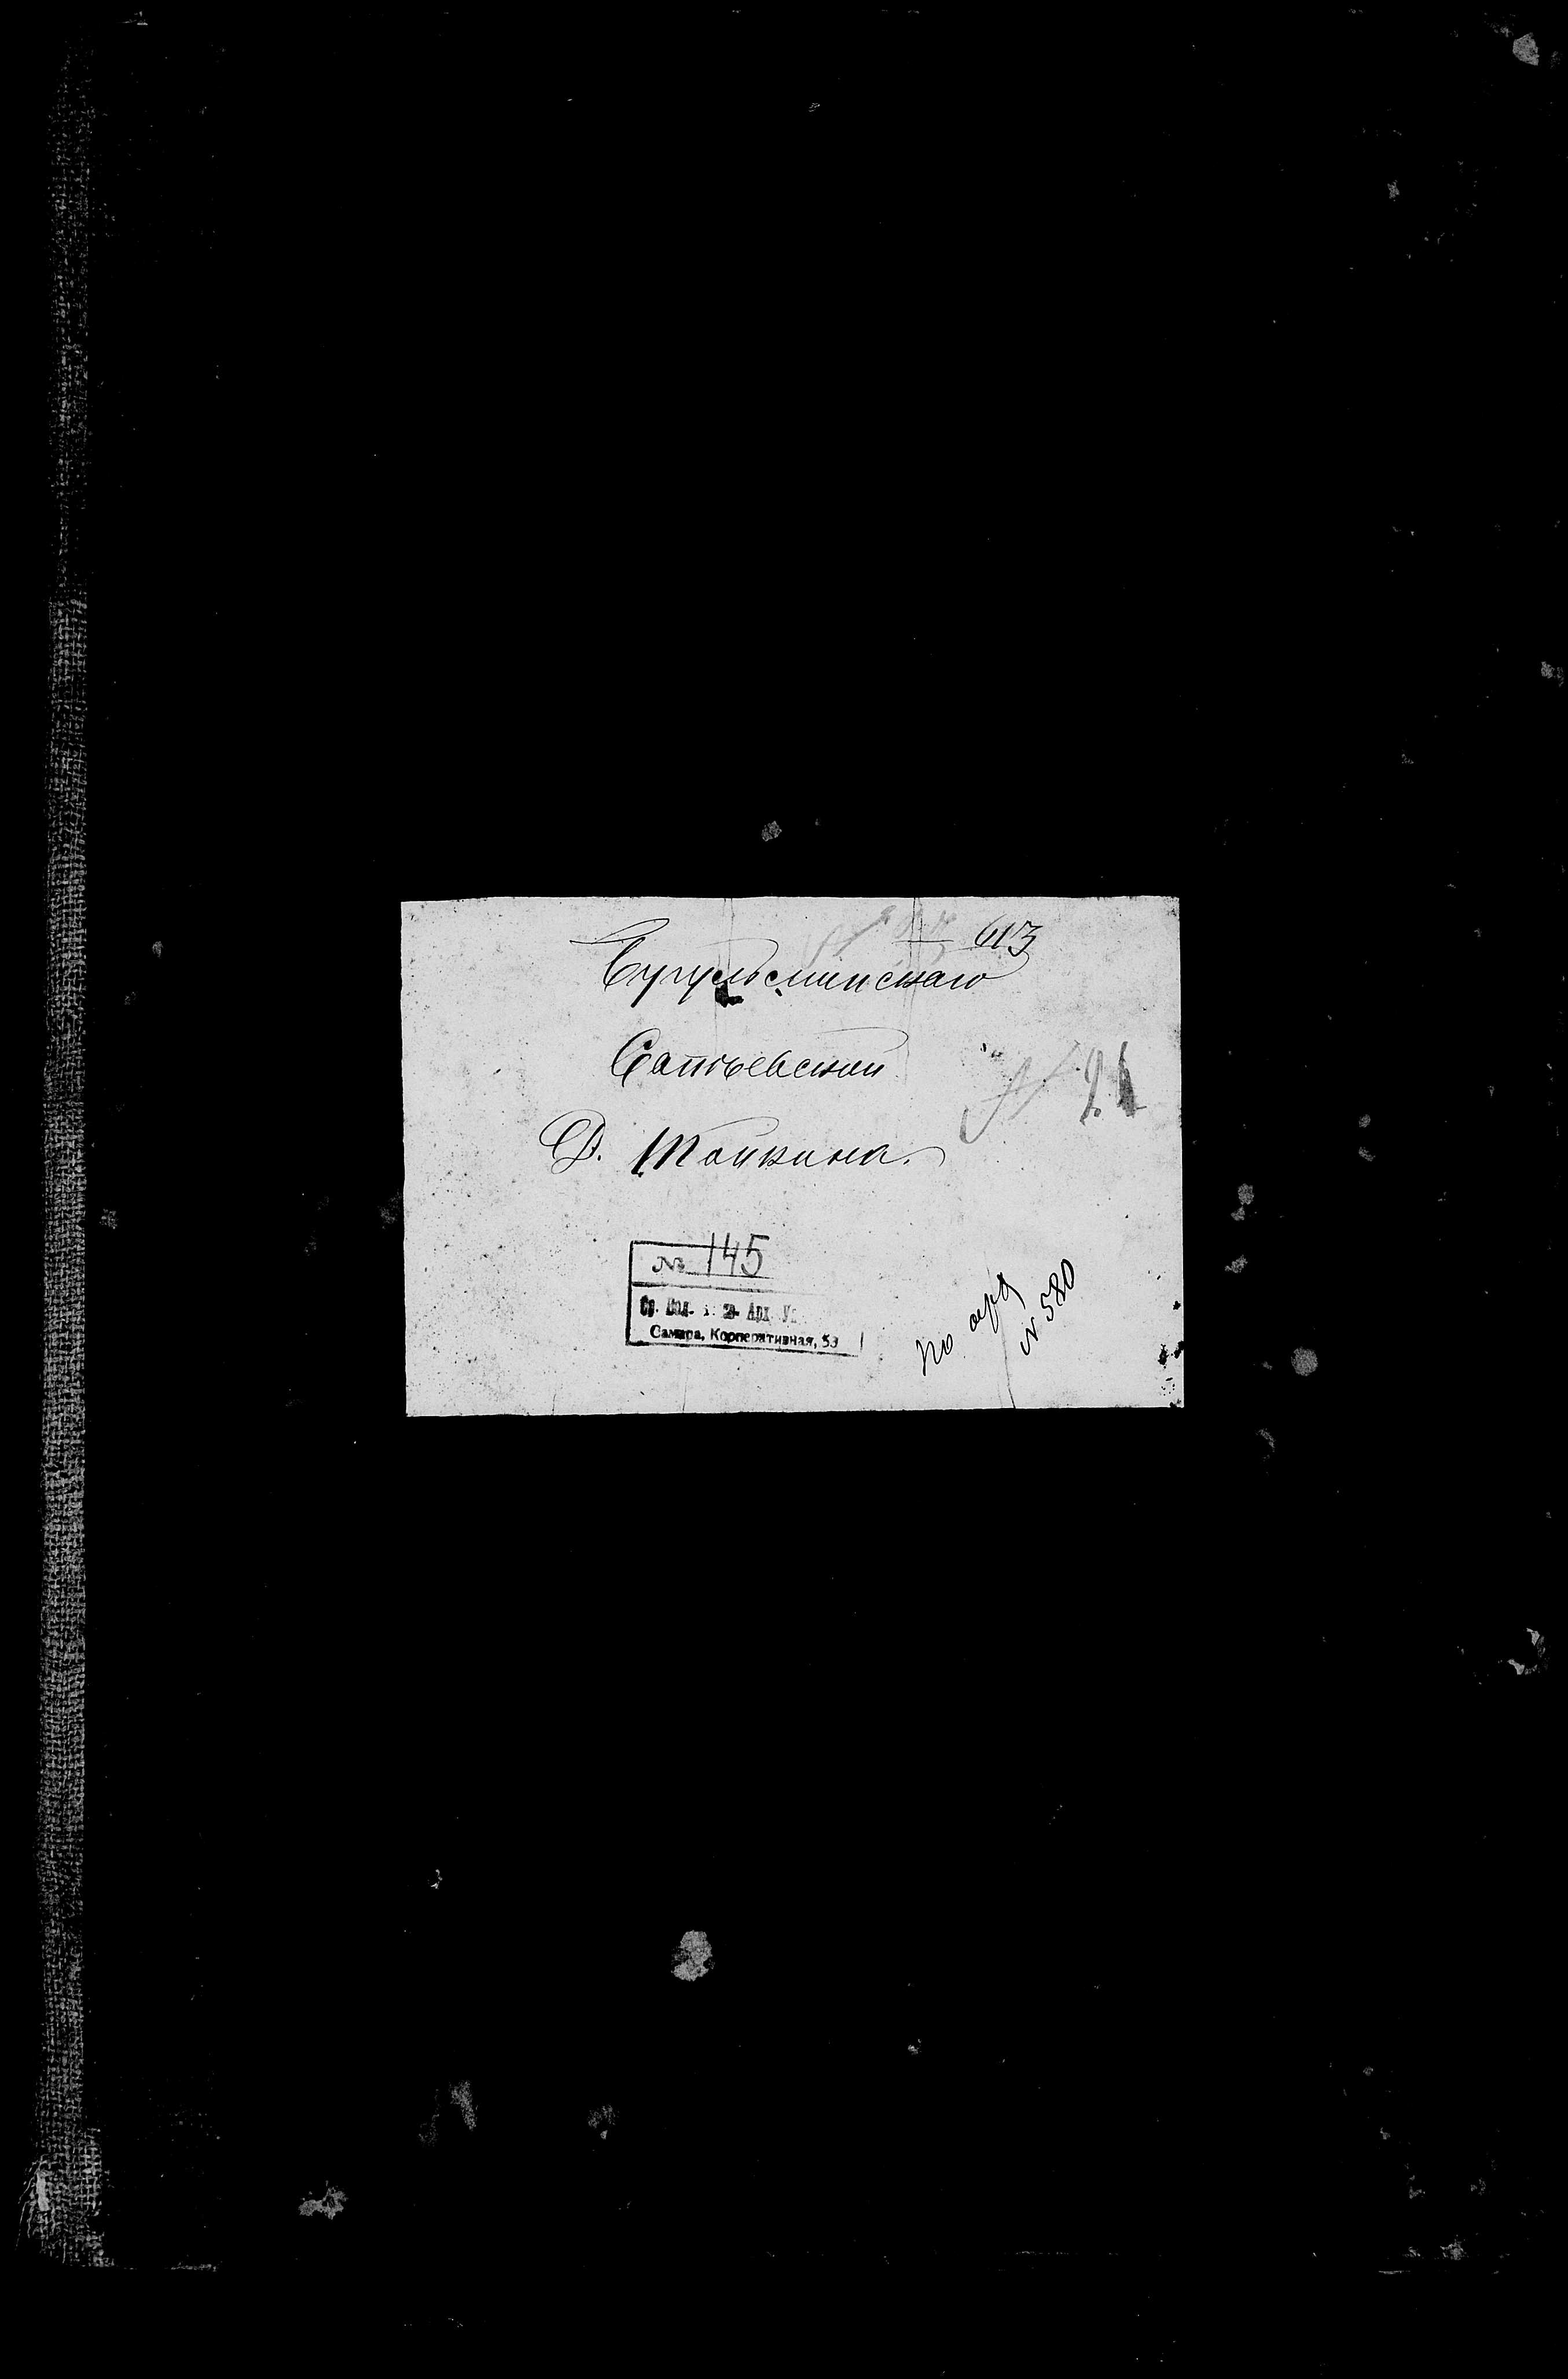 613
Бугульминскаго
Саптьевской
№ 21
Д. Тойкина.
№ 145
Ср. Вол. Арх. У
Самара, Корперативная, 53
по арх
N 580